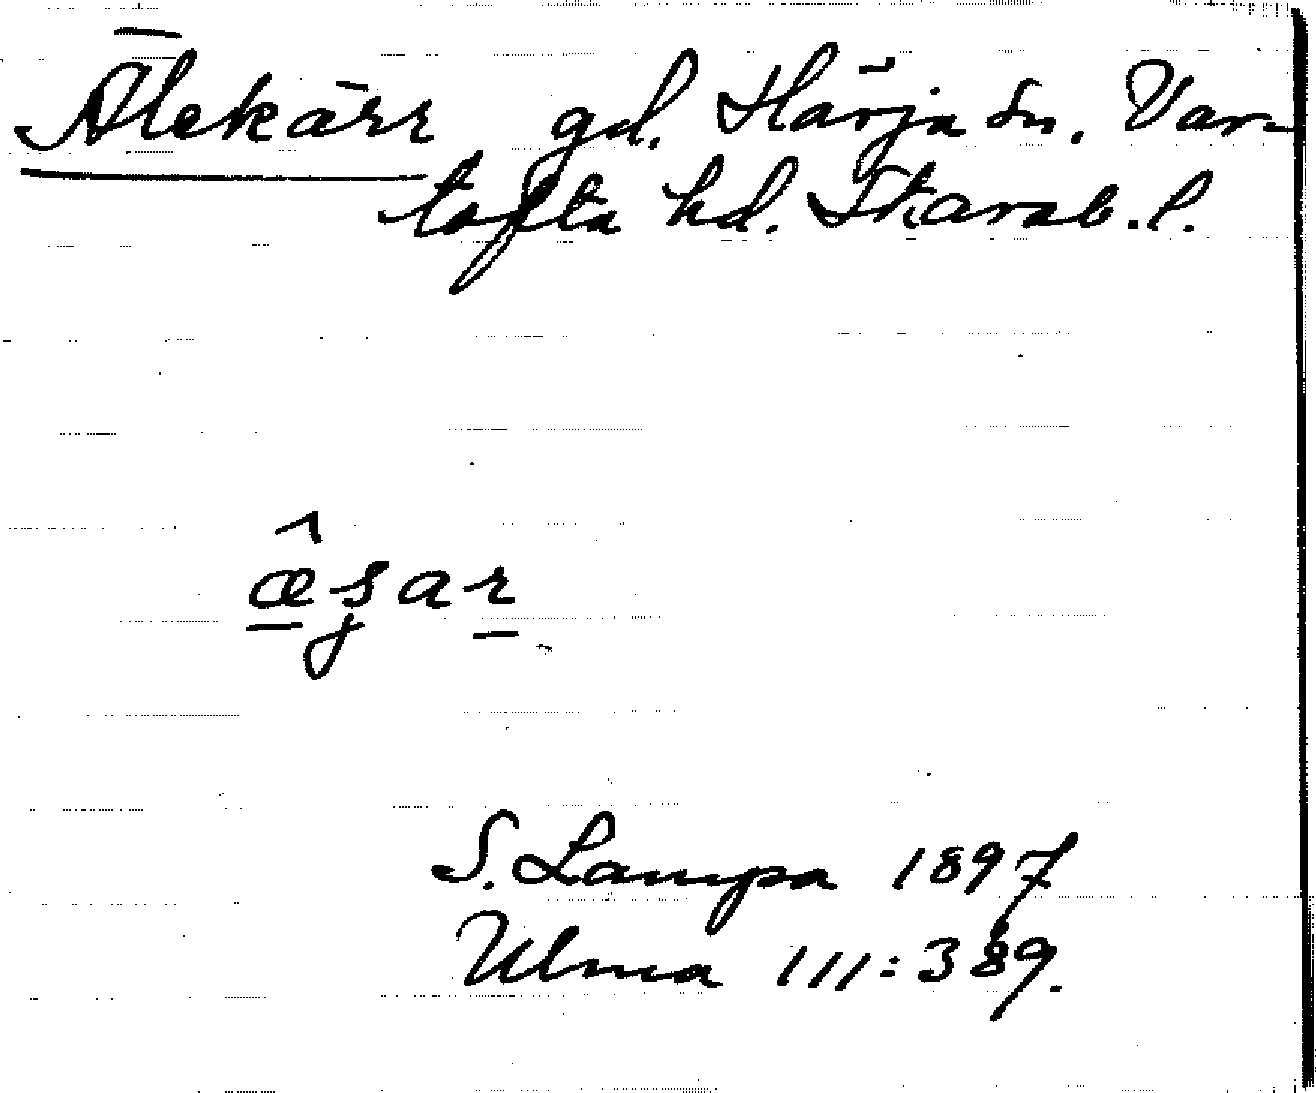 Älekärr gd. Härja sn. Var-
tofta hd. Skarab. l.
S. Lampa 1897
Ulma 111:389.